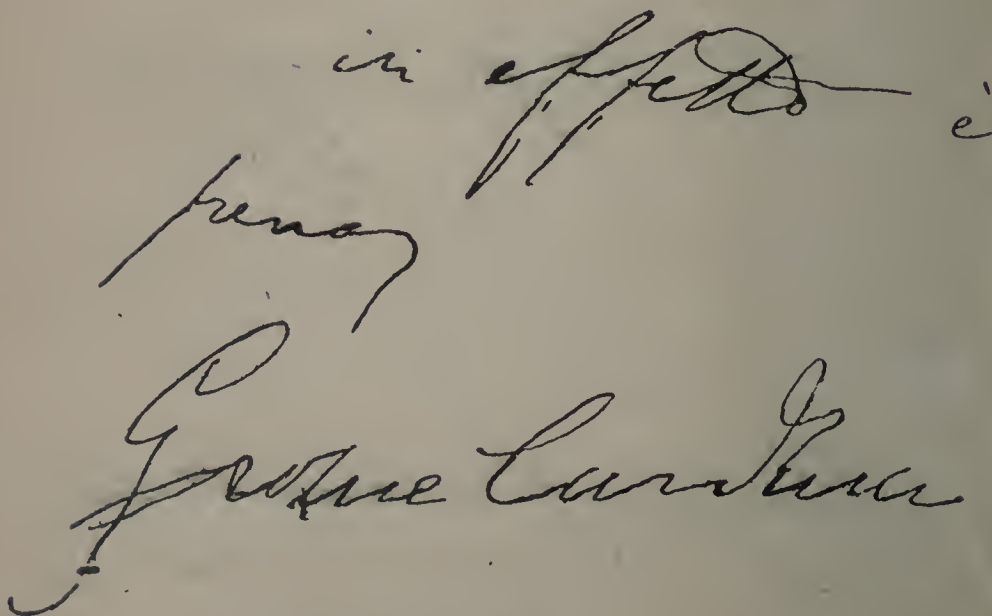 in effetto è
Giosue Carducci